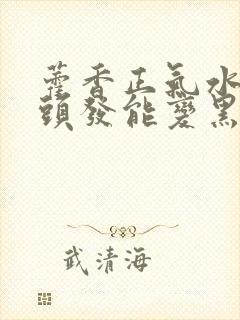 藿香正氣水
頭發能變黑
武清海